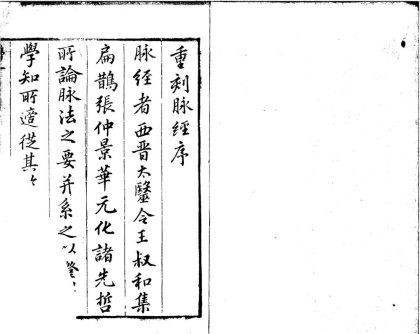 重刻脉經序
脉經者西晋太醫令王叔和集
扁鵲張仲景華元化諸先哲
所論脉法之要并系之以
學知所適從其